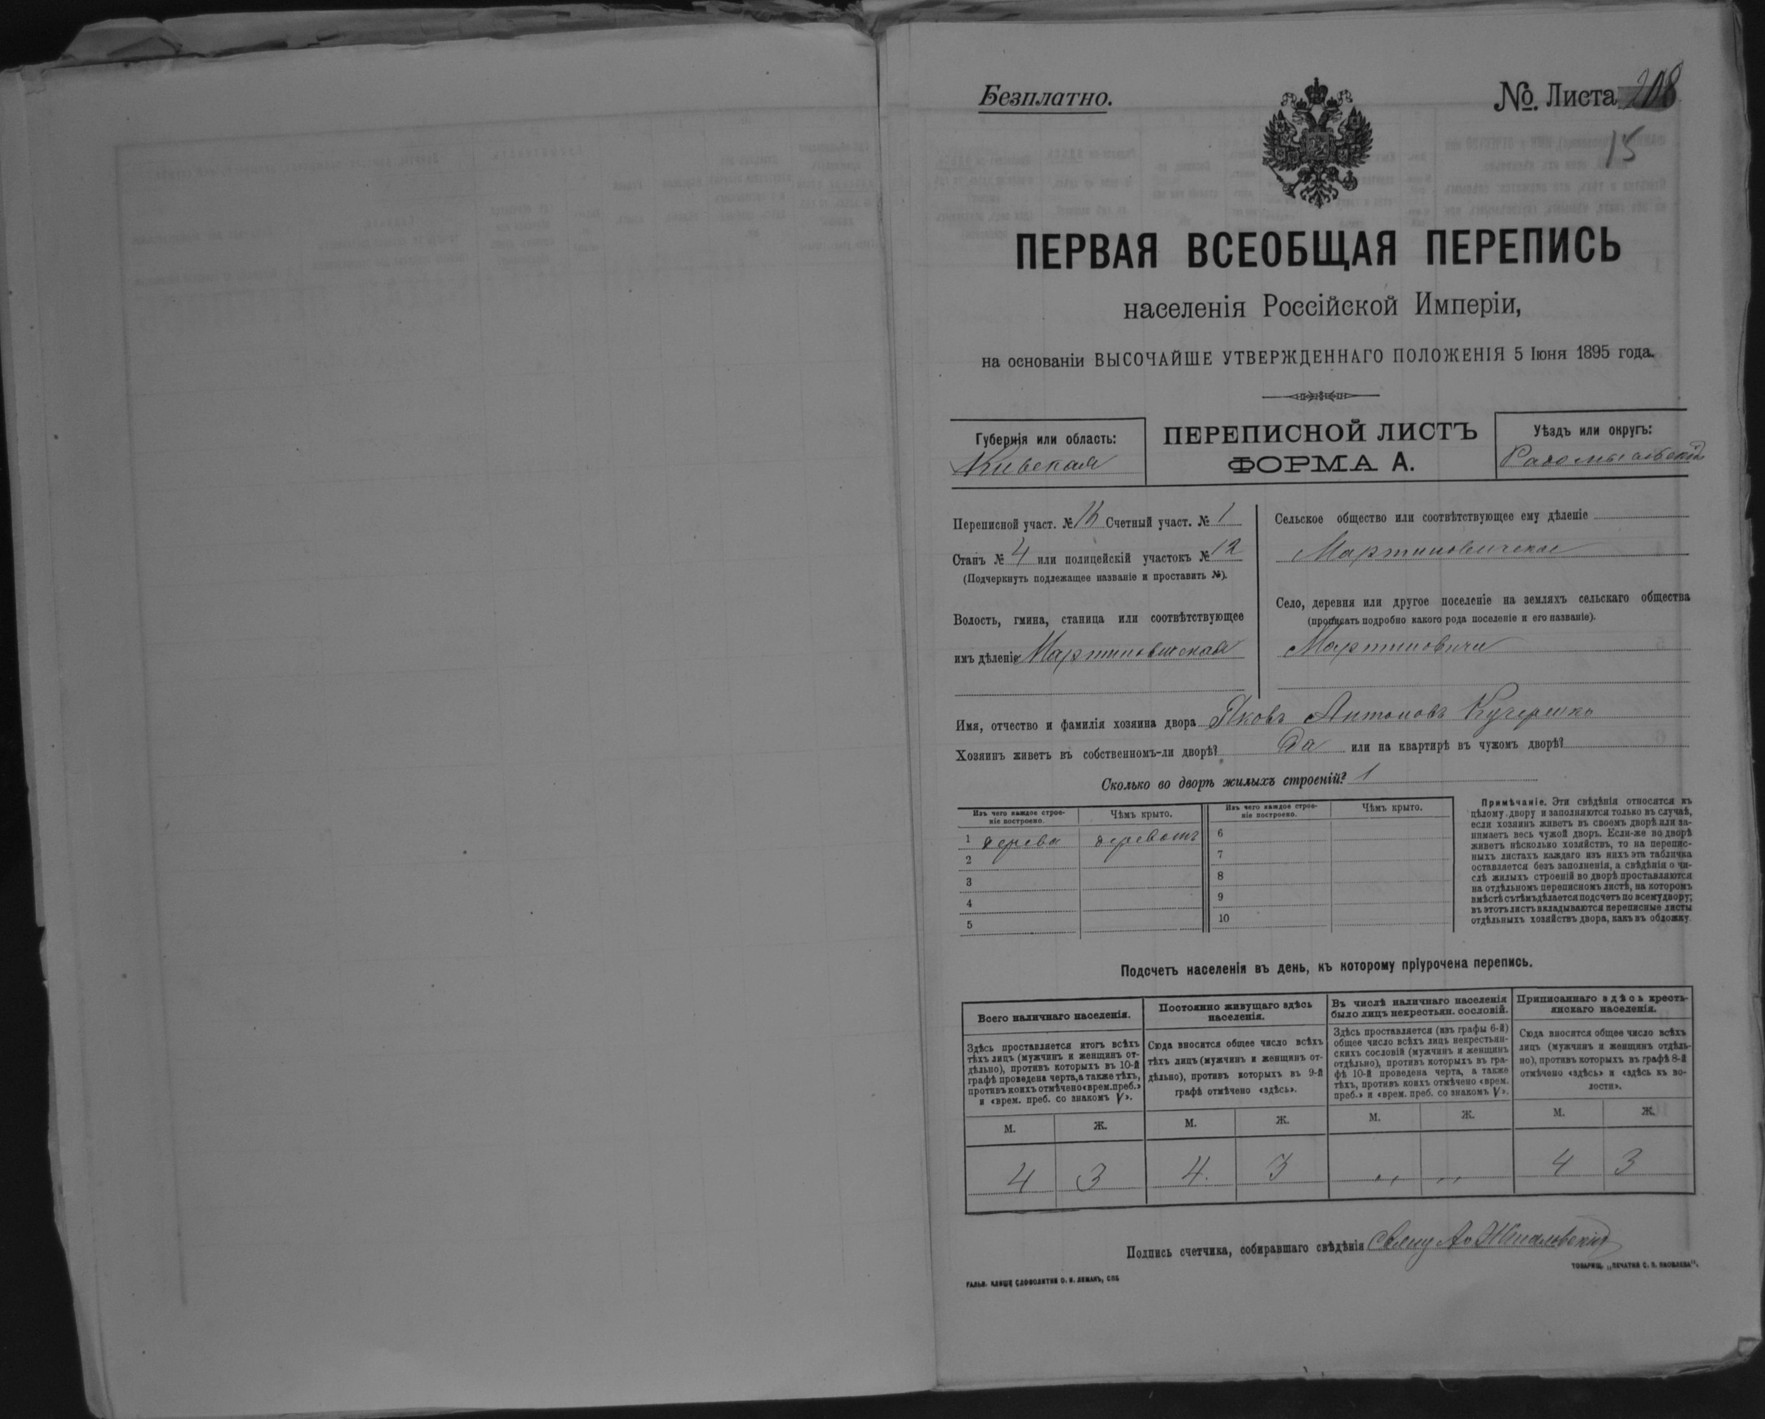 Безплатно.
№. Листа 208
15
ПЕРВАЯ ВСЕОБЩАЯ ПЕРЕПИСЬ
населенія Россійской Имперіи,
на основаніи ВЫСОЧАЙШЕ УТВЕРЖДЕННАГО ПОЛОЖЕНІЯ 5 Іюня 1895 года.
Губернія или область:
Киевская
ПЕРЕПИСНОЙ ЛИСТЪ
ФОРМА А.
Уѣздъ или округъ:
Радомысльскій
Переписной участ. № Счетный участ. № 1
Станъ № 4 или полицейскій участокъ № 12
(Подчеркнуть подлежащее названіе и проставить №).
Волость, гмина, станица или соотвѣтствующее
имъ дѣленіе Мартиновичская
Сельское общество или соотвѣтствующее ему дѣленіе
Мартиновичское
Село, деревня или другое поселеніе на земляхъ сельскаго общества
(прописать подробно какого рода поселеніе и его названіе).
Мартиновичи
Имя, отчество и фамилія хозяина двора Яковъ Антоновъ Кучеренко
Хозяинъ живетъ въ собственномъ-ли дворѣ? Да или на квартирѣ въ чужомъ дворѣ?
Сколько во дворѣ жилыхъ строеній? 1
Изъ чего каждое строе-
ніе построено.
Чѣмъ крыто.
Изъ чего каждое строе-
ніе построено.
Чѣмъ крыто.
1 дерева деревомъ 6
2 7
3 8
4 9
5 10
Примѣчаніе. Эти свѣдѣнія относятся къ
цѣлому двору и заполняются только въ случаѣ,
если хозяинъ живетъ въ своемъ дворѣ или за-
нимаетъ весь чужой дворъ. Если-же во дворѣ
живетъ нѣсколько хозяйствъ, то на перепис-
ныхъ листахъ каждаго изъ нихъ эта табличка
оставляется безъ заполненія, а свѣдѣнія о чи-
слѣ жилыхъ строеній во дворѣ проставляются
на отдѣльномъ переписномъ листѣ, на которомъ
вмѣстѣ съ тѣмъ дѣлается подсчетъ по всему двору;
въ этотъ листъ вкладываются переписные листы
отдѣльныхъ хозяйствъ двора, какъ въ обложку.
Подсчетъ населенія въ день, къ которому пріурочена перепись.
Всего наличнаго населенія.
Здѣсь проставляется итогъ всѣхъ
тѣхъ лицъ (мужчинъ и женщинъ от-
дѣльно), противъ которыхъ въ 10-й
графѣ проведена черта, а также тѣхъ,
противъ коихъ отмѣчено «врем. преб.»
и «врем. преб. со знакомъ V».
Постоянно живущаго здѣсь
населенія.
Сюда вносится общее число всѣхъ
тѣхъ лицъ (мужчинъ и женщинъ от-
дѣльно), противъ которыхъ въ 9-й
графѣ отмѣчено «здѣсь».
Въ числѣ наличнаго населенія
было лицъ некрестьян. сословій.
Здѣсь проставляется (изъ графы 6-й)
общее число всѣхъ лицъ некрестьян-
скихъ сословій (мужчинъ и женщинъ
отдѣльно), противъ которыхъ въ гра-
фѣ 10-й проведена черта, а также
тѣхъ, противъ коихъ отмѣчено «врем.
преб.» и «врем. преб. со знакомъ V».
Приписаннаго здѣсь кресть-
янскаго населенія.
Сюда вносится общее число всѣхъ
лицъ (мужчинъ и женщинъ отдѣль-
но), противъ которыхъ въ графѣ 8-й
отмѣчено «здѣсь» и «здѣсь къ во-
лости».
М. Ж. М. Ж. М. Ж. М. Ж.
4 3 4. 3 „ „ 4 3
Подпись счетчика, собиравшаго свѣдѣнія
ГАЛЬВ. КЛИШЕ СЛОВОЛИТНИ О. И. ЛЕМАНЪ, СПБ
ТОВАРИЩ. „ПЕЧАТНЯ С. П. ЯКОВЛЕВА".